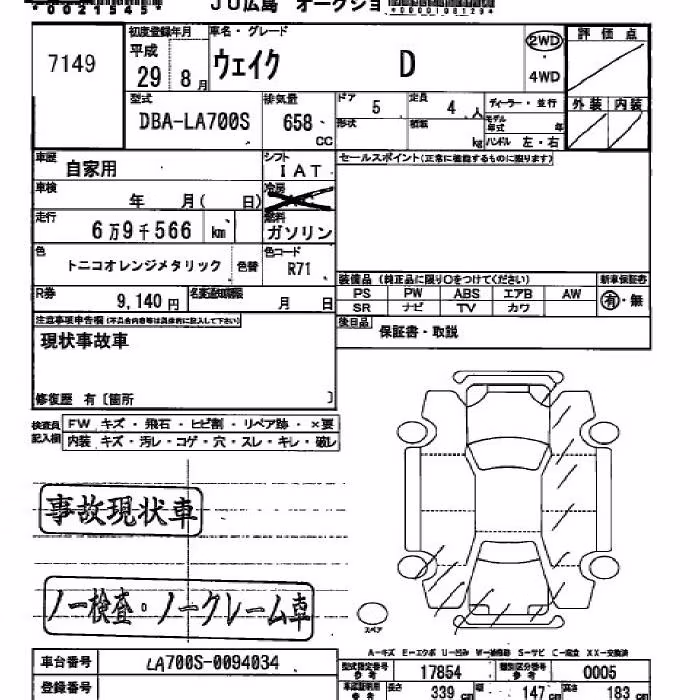 *00215454*
JU広島 オークショ
*00001081294
7149
初度登録年月
平成
29 8月
車名・グレード
ウェイク D
2WD
4WD
評価点
外装 内装
型式
DBA-LA700S
排気量
658 CC
ドア 5
定員 4人
形状
積載 kg
ディーラー・並行
モデル年式 年
ハンドル 左・右
車歴 自家用
シフト IAT
セールスポイント(正常に機能するものに限ります)
車検 年 月( 日)
冷房
走行 6万9千566 km
燃料 ガソリン
色 トニコオレンジメタリック 色替
色コード R71
装備品 (純正品に限り○をつけてください)
新車保証書
PS PW ABS エアB AW
SR ナビ TV カワ
有・無
R券 9,140円
名変通知期限 月 日
後日品 保証書・取説
注意事項申告欄(不具合内容等は具体的に記入して下さい)
現状事故車
修復歴 有〔箇所 〕
検査員記入欄
FW キズ・飛石・ヒビ割・リペア跡・×要
内装 キズ・汚レ・コゲ・穴・スレ・キレ・破レ
事故現状車
ノー検査・ノークレーム車
スペア
A-キズ E-エクボ U-凹み W-補修跡 S-サビ C-腐食 XX-交換済
車台番号 LA700S-0094034
登録番号
型式指定番号 参考 17854
類別区分番号 参考 0005
車検証明用 参考
長さ 339 cm
幅 147 cm
高さ 183 cm